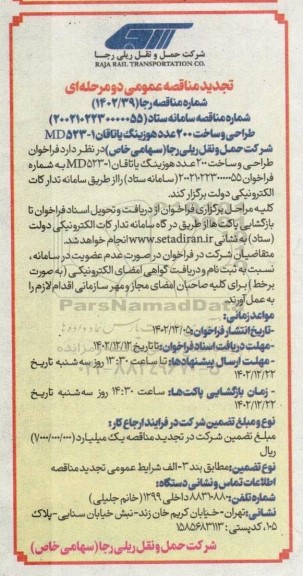 شرکت حمل و نقل ریلی رجا
RAJA RAIL TRANSPORTATION CO.
تجدید مناقصه عمومی دو مرحله‌ای
شماره مناقصه رجا (۱۴۰۲/۳۹)
شماره مناقصه سامانه ستاد (۲۰۰۲۱۰۲۲۳۰۰۰۰۰۵۵)
طراحی و ساخت ۲۰۰ عدد هوزینگ یاتاقان MD۵۲۳-۱
شرکت حمل و نقل ریلی رجا (سهامی خاص) در نظر دارد فراخوان
طراحی و ساخت ۲۰۰ عدد هوزینگ یاتاقان MD۵۲۳-۱ به شماره
فراخوان ۲۰۰۲۱۰۲۲۳۰۰۰۰۰۵۵ (سامانه ستاد) را از طریق سامانه تدارکات
الکترونیکی دولت برگزار کند.
کلیه مراحل برگزاری فراخوان از دریافت و تحویل اسناد فراخوان تا
بازگشایی پاکت‌ها از طریق درگاه سامانه تدارکات الکترونیکی دولت
(ستاد) به نشانی www.setadiran.ir انجام خواهد شد.
متقاضیان شرکت در فراخوان در صورت عدم عضویت در سامانه،
نسبت به ثبت نام و دریافت گواهی امضای الکترونیکی (به صورت
برخط) برای کلیه صاحبان امضای مجاز و مهر سازمانی اقدام لازم را
به عمل آورند.
مواعد زمانی:
-تاریخ انتشار فراخوان: ۱۴۰۲/۱۲/۰۵
-مهلت دریافت اسناد فراخوان: تا تاریخ ۱۴۰۲/۱۲/۱۲
-مهلت ارسال پیشنهادها: تا ساعت ۱۳:۳۰ روز سه شنبه تاریخ
۱۴۰۲/۱۲/۲۲
- زمان بازگشایی پاکت‌ها: ساعت ۱۴:۳۰ روز سه شنبه تاریخ
۱۴۰۲/۱۲/۲۲
نوع و مبلغ تضمین شرکت در فرایند ارجاع کار:
مبلغ تضمین شرکت در تجدید مناقصه یک میلیارد (۱/۰۰۰/۰۰۰/۰۰۰)
ریال
نوع تضمین: مطابق بند ۳-الف شرایط عمومی تجدید مناقصه
اطلاعات تماس و نشانی دستگاه:
شماره تلفن: ۸۸۳۱۰۸۸۰ داخلی ۱۲۹۹ (خانم جلیلی)
نشانی: تهران-خیابان کریم خان زند-نبش خیابان سنایی-پلاک
۱۰۵، کدپستی: ۱۵۸۵۶۸۳۱۱۳
شرکت حمل و نقل ریلی رجا (سهامی خاص)